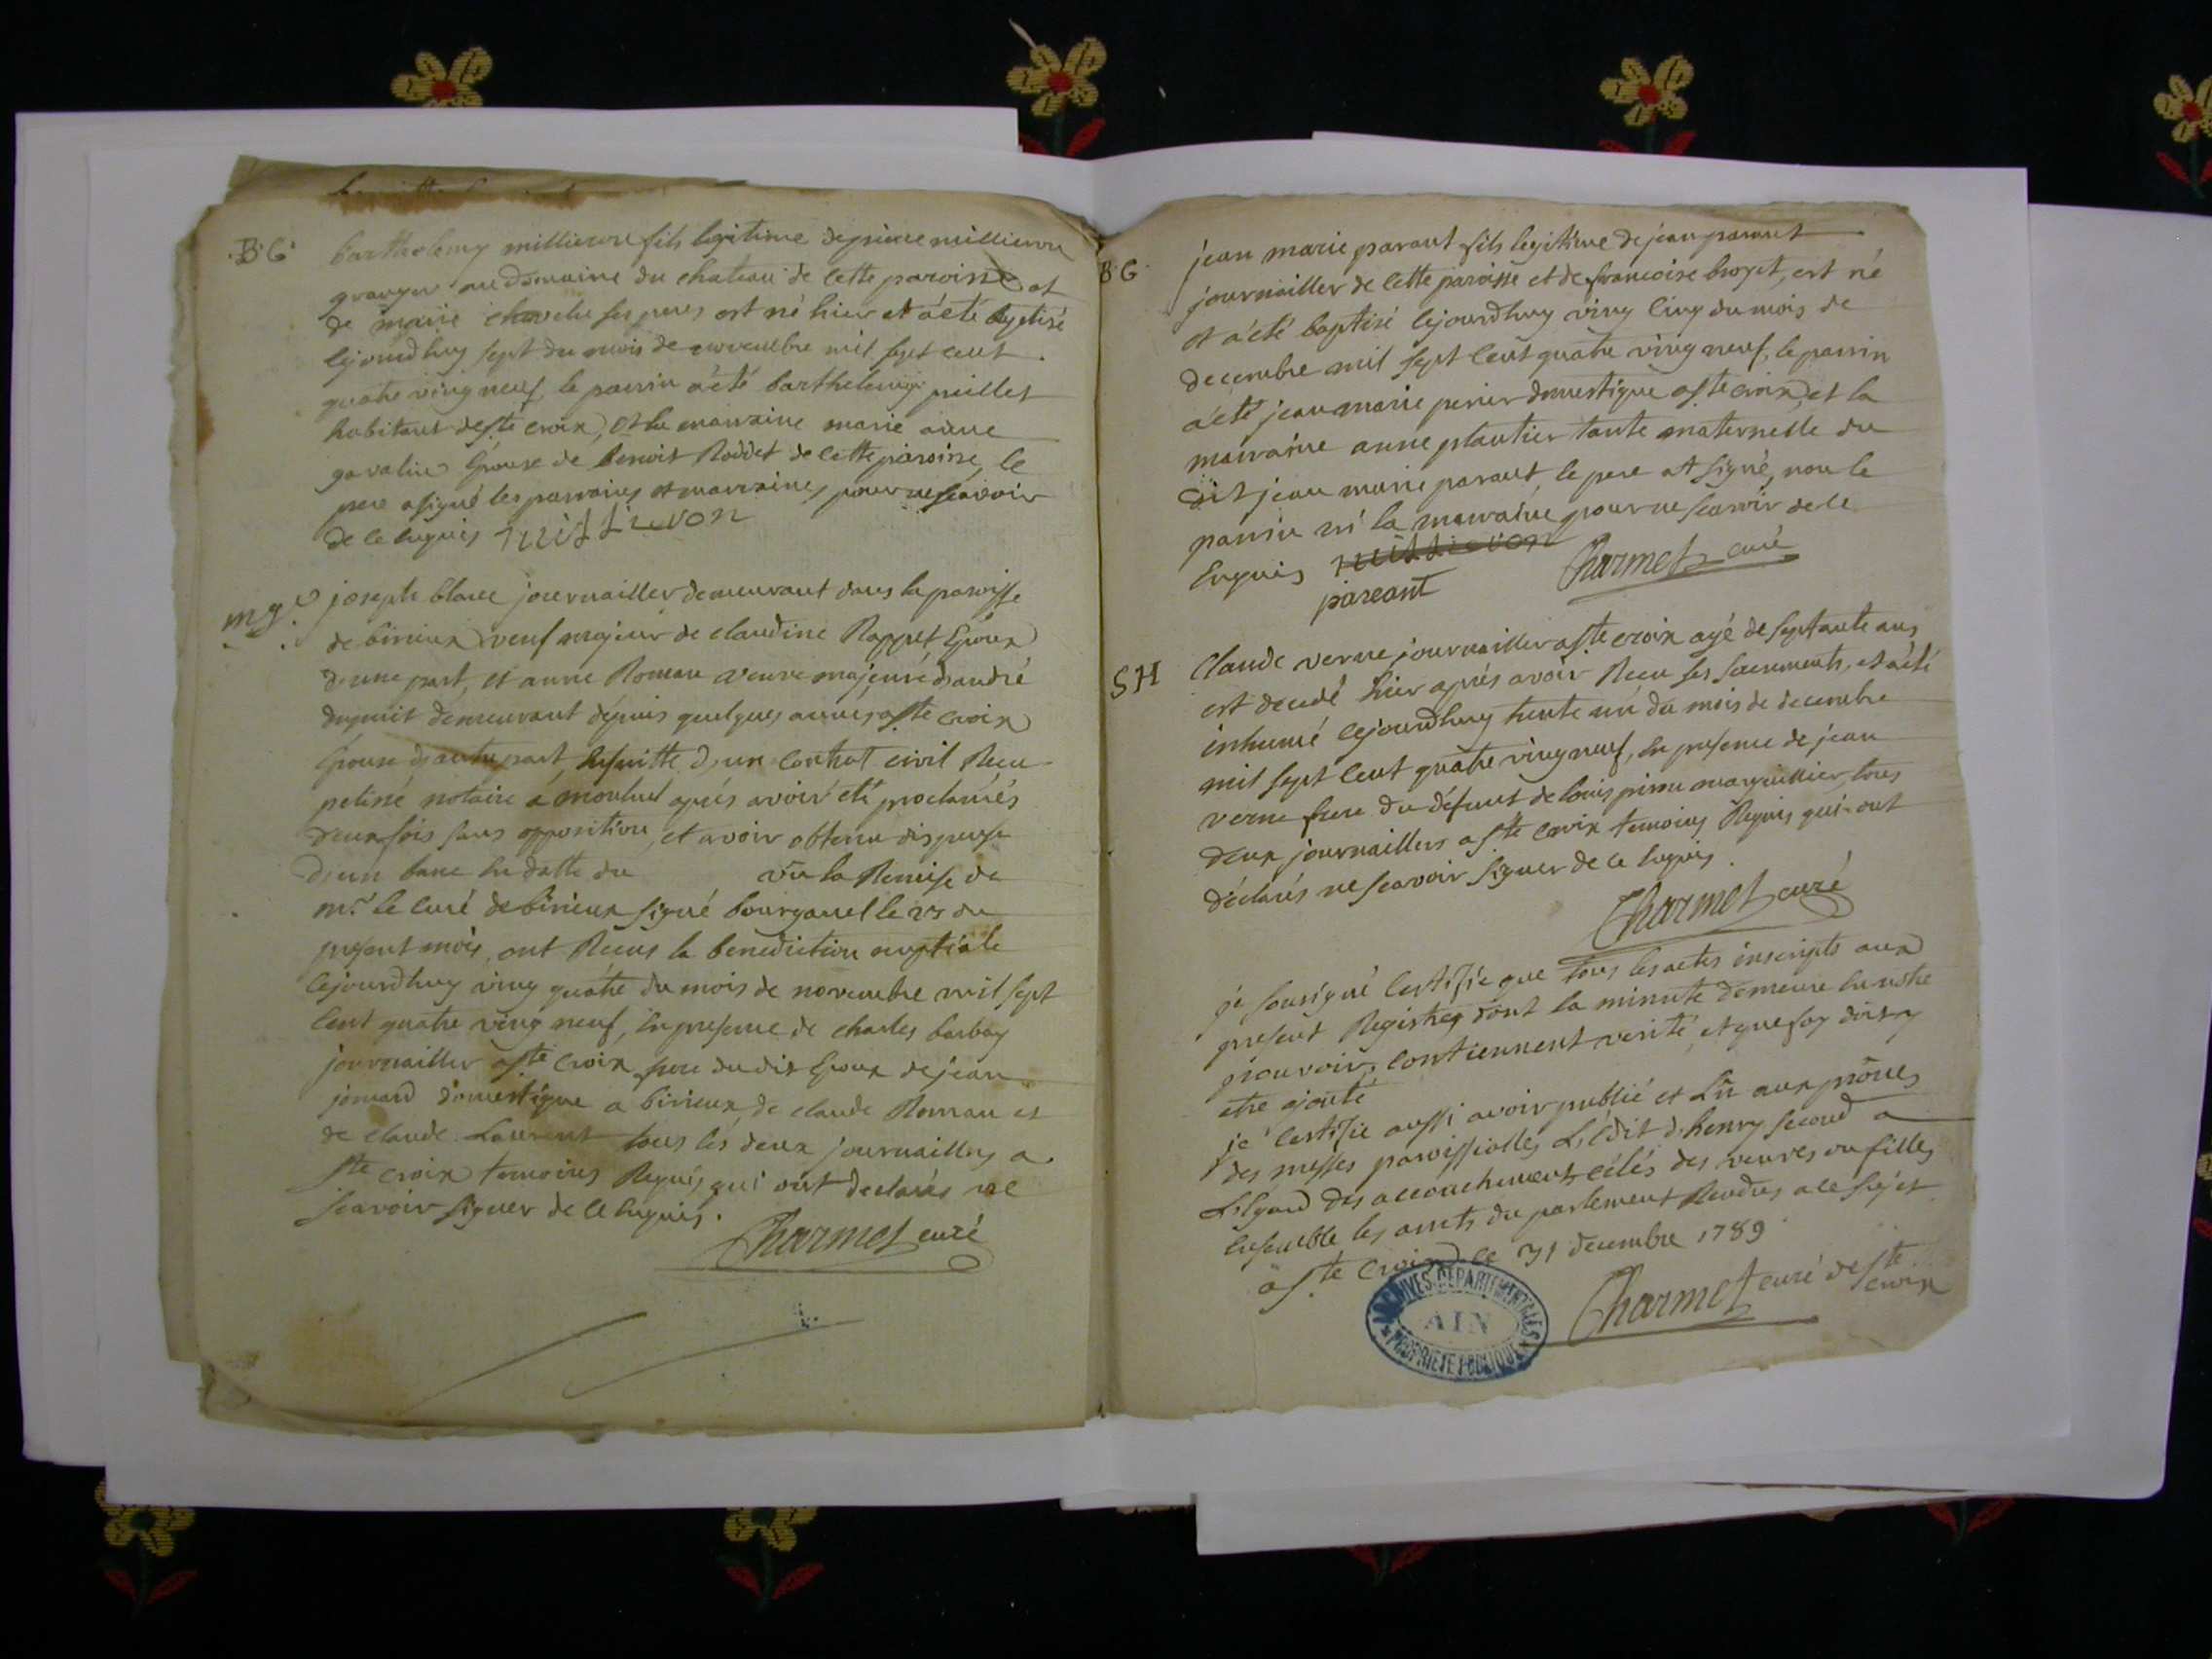 B G
barthelemy millievron fils legitime de pierre millievron
granger au domaine du chateau de cette paroisse et
de marie chavelu ses peres est né hier et a été baptisé
cejourdhuy sept du mois de novembre mil sept cent
quatre ving neuf, le parrin a été barthelemy millet
habitant de ste croix, et la marraine marie anne
gavalin Epouse de benoit Roddet de cette paroisse, le
pere a signé les parrains et marraines pour ne scavoir
de ce enquis millievron
mg.
joseph blanc journailler demeurant dans la paroisse
de birieux veuf majeur de claudine Rappet Epoux
d'une part, et anne Roman veuve majeure d'andré
dupuit demeurant depuis quelques annes a ste croix
Epouse d'autre part, Ensuitte d'un contrat civil Recu
peliné notaire a montluel aprés avoir été proclamés
deux fois sans opposition, et avoir obtenu dispense
d'un banc En datte du vû la Remise de
mr. le curé de birieux signé bourganel le 23 du
present mois, ont Recus la benediction nuptiale
cejourdhuy ving quatre du mois de novembre mil sept
cent quatre ving neuf, En presence de charles barbay
journailler a ste croix, du dit Epoux de jean
jomard domestique a birieux de claude Roman et
de claude Laurent tous lés deux journaillers a
ste croix temoins Requis qui ont declarés ne
scavoir signer de ce Enquis.
Charmet curé
B G
jean marie parant fils legitime de jean parant
journailler de cette paroisse et de francoise broyet, est né
et a été baptisé cejourdhuy ving cinq du mois de
decembre mil sept cent quatre ving neuf, le parrin
a été jean marie perier domestique a ste croix, et la
marraine anne plantier tante maternelle du
dit jean marie parant, le pere at signé, non le
parrin ni la marraine pour ne scavoir de ce
Enquis millievron Charmet curé
pareant
S H
Claude verne journailler a ste croix agé de septante ans
est decedé hier aprés avoir Recu ses sacrements, et a été
inhumé cejourdhuy trente un du mois de decembre
mil sept cent quatre ving neuf, En presence de jean
verne frere du défunt de louis marguillier, tous
deux journaillers a ste croix temoins Requis qui ont
déclarés ne scavoir signer de ce Enquis.
Charmet curé
je sousigné certifie que tous les actes inscripts aux
present Registres dont la minute demeure En notre
pouvoir, contiennent verité, et que foy doit y
etre ajouté
je certifie aussi avoir publié et Lû aux prônes
des messes paroissialles L'édit d'henry second a
L'Egard des accouchements célés des veuves ou filles
Ensemble les arrets du parlement Rendus a ce sujet
a ste Croix ce 31 decembre 1789
Charmet curé de ste
croix
ARCHIVES DEPARTEMENTALES
AIN
PROPRIETE PUBLIQUE